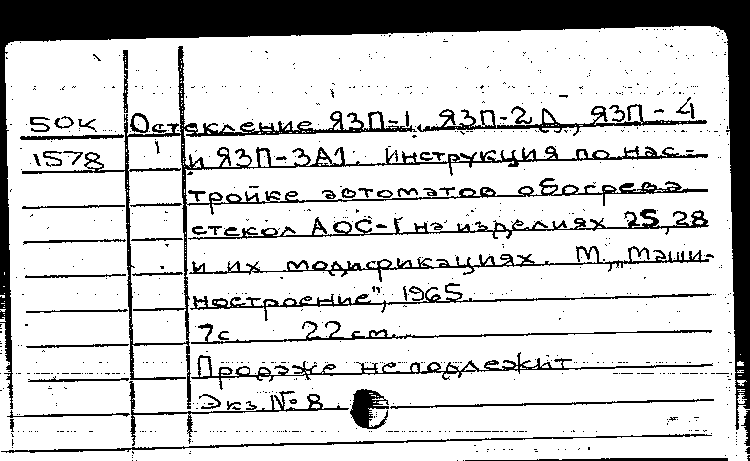 50К Остекление ЯЗП-1, ЯЗП-2Д, ЯЗП-4
1578 и ЯЗП-3А1. Инструкция по нас-
тройке автоматов обогрева
стекол АОС-1 на изделиях 25, 28
и их модификациях. М., „Маши-
ностроение", 1965.
7с. 22 см.
Продаже не подлежит
Экз. № 8.